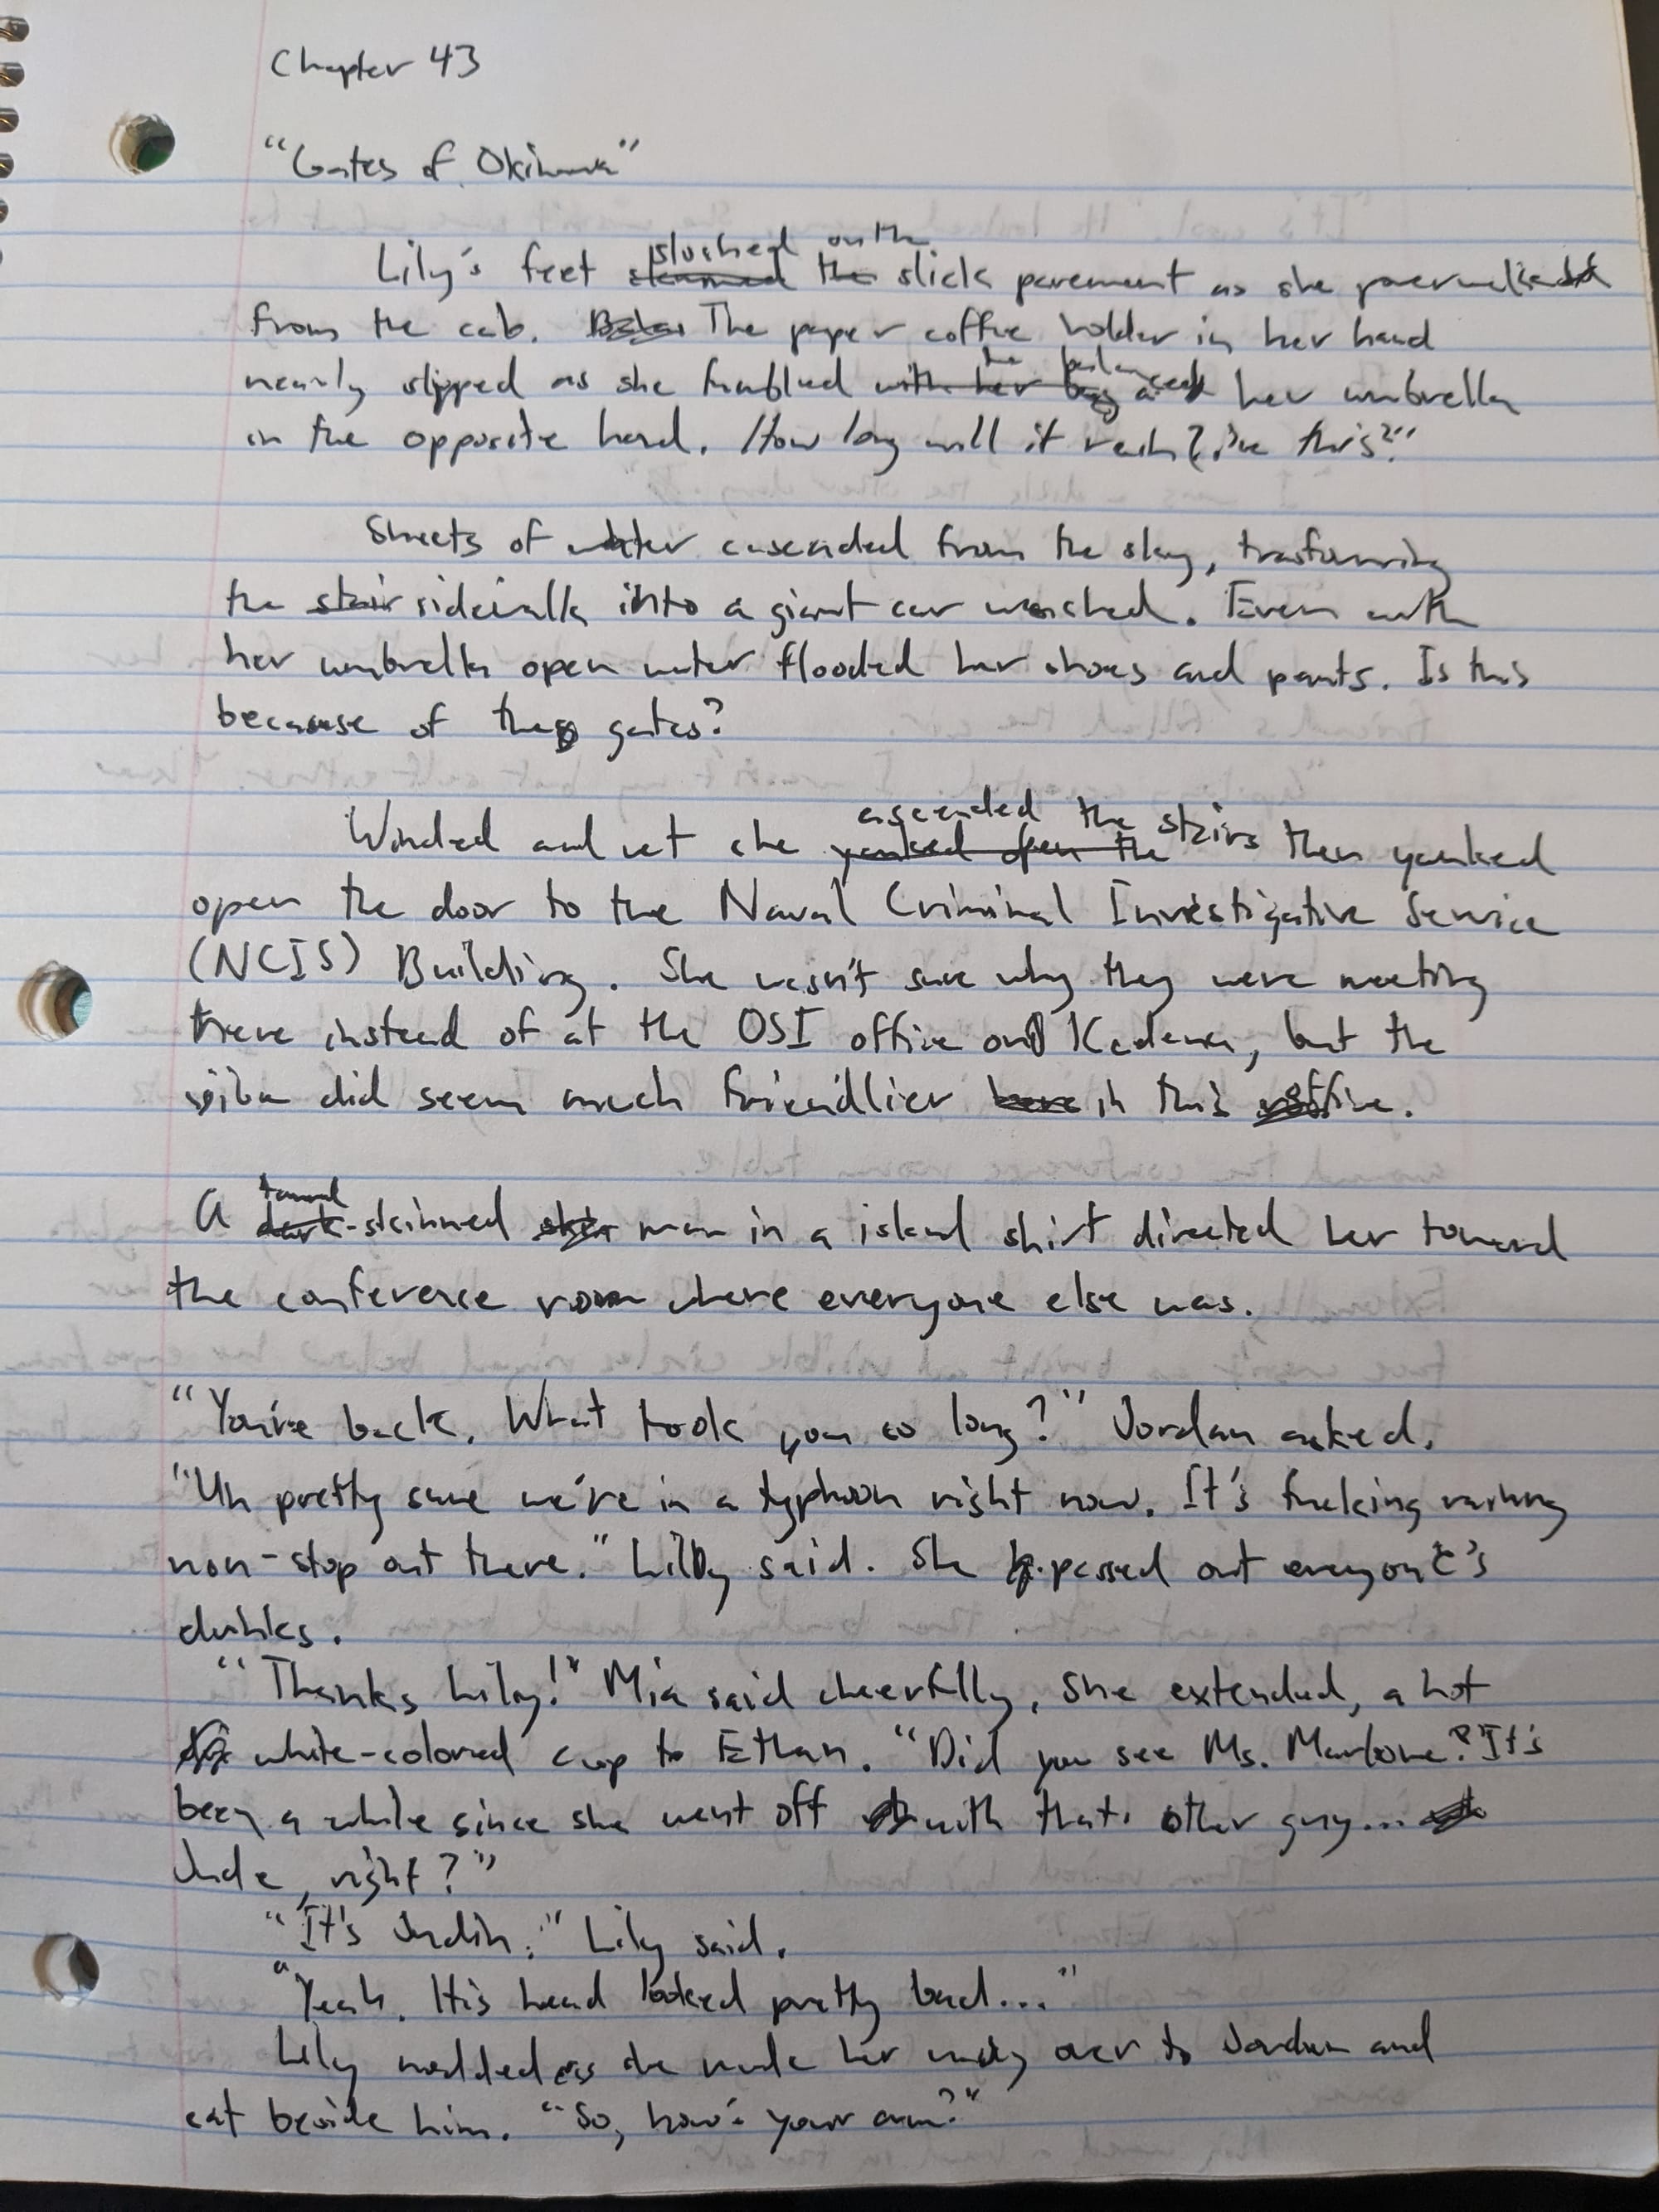 Chapter 43
"Gates of Okinawa"
Lily's feet sloshed on the slick pavement as she
from the cab. The paper coffee holder in her hand
nearly slipped as she fumbled her umbrella
in the opposite hand. How long will it rain like this?"
Sheets of water cascaded from the sky, trasforming
the sidewalk into a giant car washed. Even with
her umbrella open water flooded her shoes and pants. Is this
because of the gates?
Winded and wet she ascended the stairs then yanked
open the door to the Naval Criminal Investigative Service
(NCIS) Building. She wasn't sure why they were meeting
there instead of at the OSI office on Kadena, but the
vibe did seem much friendlier in this office.
A tanned-skinned man in a island shirt directed her toward
the conference room where everyone else was.
"You're back. What took you so long?" Jordan asked.
"Uh pretty sure we're in a typhoon right now. It's fucking raining
non-stop out there." Lily said. She passed out everyone's
drinks.
"Thanks Lily!" Mia said cheerfully, She extended, a hot
white-colored cup to Ethan. "Did you see Ms. Marlowe? It's
been a while since she went off with that other guy...
Jude, right?"
"It's Judin." Lily said.
"Yeah. His head looked pretty bad..."
Lily nodded as she made her way over to Jordan and
sat beside him. "So, how's your arm?"